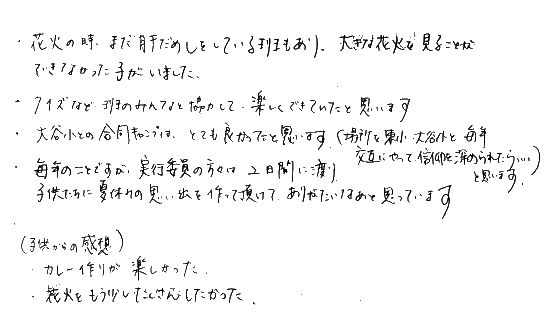 ・花火の時、まだ肝だめしをしている班もあり、大きな花火を見ることが
できなかった子がいました。
・クイズなど班のみんなと協力して、楽しくできていたと思います
・大谷小との合同キャンプは、とても良かったと思います。(場所を東小、大谷小と毎年
交互にやって、信仰を深められたらいい)
と思います。
・毎年のことですが、実行委員の方々は2日間に渡り、
子供たちに夏休みの思い出を作って頂けて、ありがたいなあと思っています
(子供からの感想)
・カレー作りが楽しかった。
・花火をもう少したくさんしたかった。